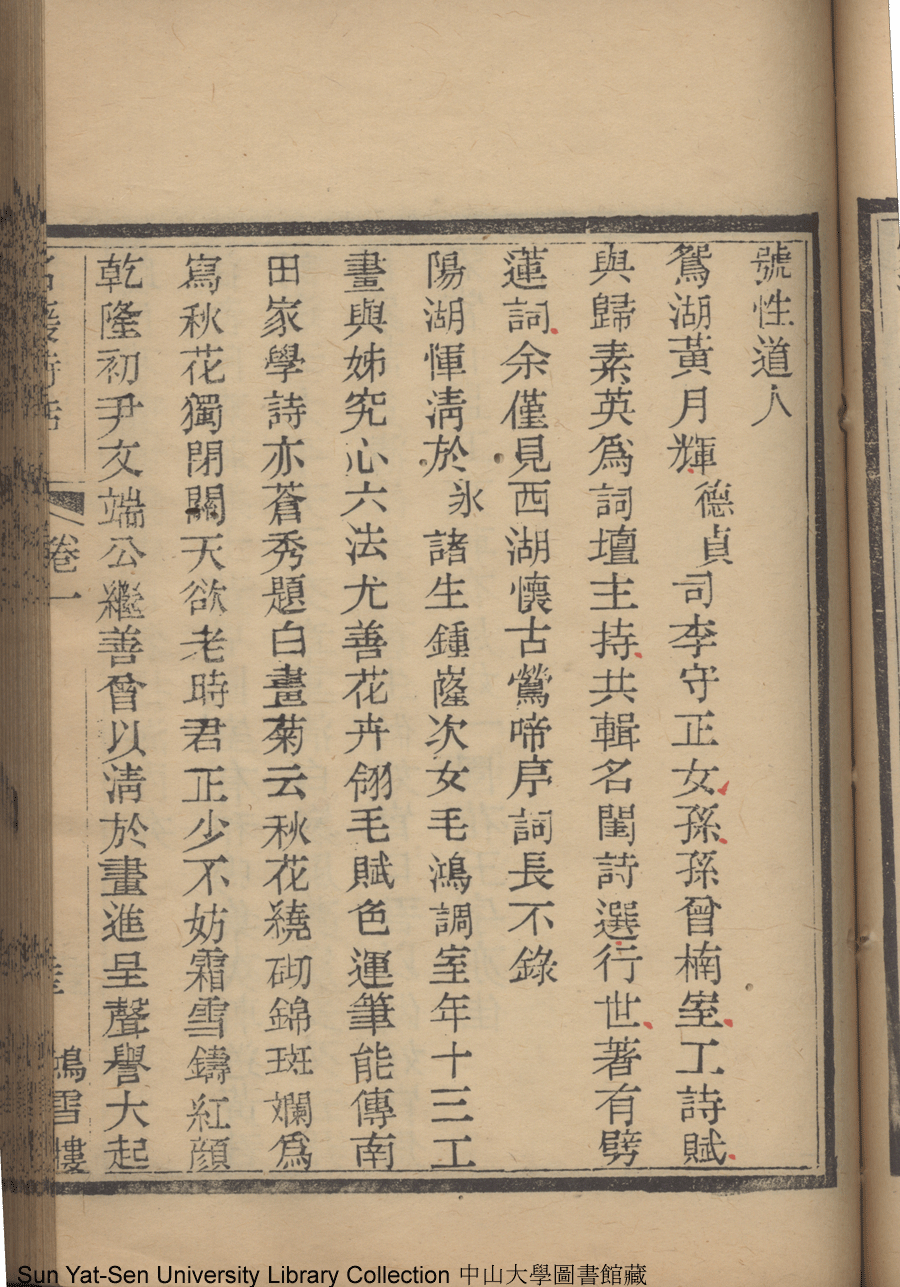 號性道人
鴛湖黃月輝德貞司李守正女孫孫曾楠室工詩賦
與歸素英爲詞壇主持共輯名閨詩選行世著有劈
蓮詞余僅見西湖懷古鶯啼序詞長不錄
陽湖惲淸於氷諸生鍾嶐次女毛鴻調室年十三工
畫與姊究心六法尤善花卉翎毛賦色運筆能傳南
田家學詩亦蒼秀題白畫菊云秋花繞砌錦斑斕爲
寫秋花獨閉關天欲老時君正少不妨霜雪鑄紅顏
乾隆初尹文端公繼善曾以淸於畫進呈聲譽大起
名媛詩話
卷一
鴻雪樓
Sun Yat-Sen University Library Collection 中山大學圖書館藏